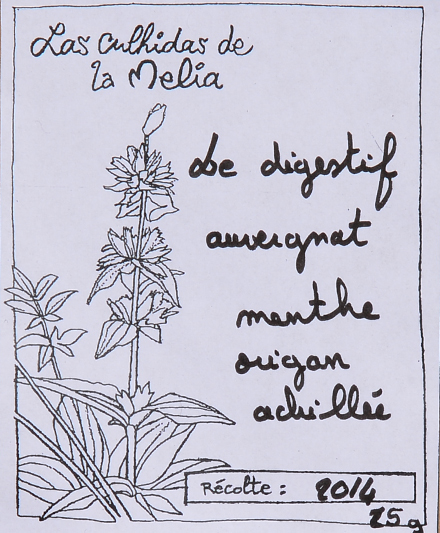 Las culhidas de
la Melia
Le digestif
auvergnat
menthe
origan
achillée
Récolte : 2014
25g